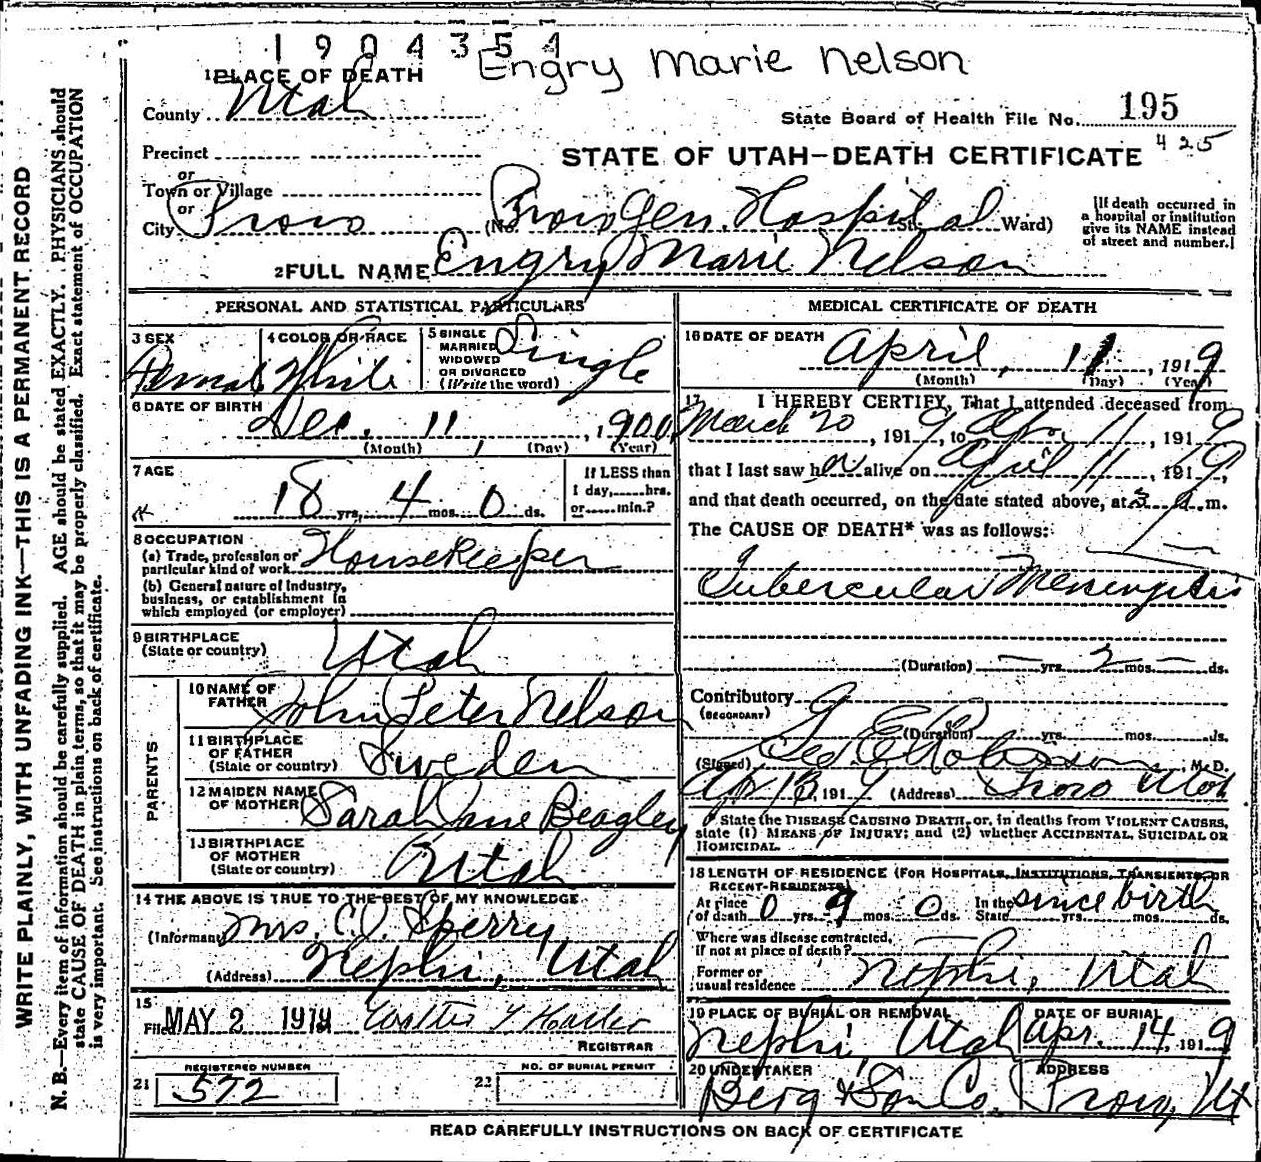 1904354
Engry Marie Nelson
1 PLACE OF DEATH
County Utah
State Board of Health File No. 195
425
Precinct
or
Town or Village
or
City Provo
STATE OF UTAH—DEATH CERTIFICATE
(No. Provo Gen. Hospital St. Ward)
[If death occurred in
a hospital or institution
give its NAME instead
of street and number.]
2 FULL NAME Engry Marie Nelson
PERSONAL AND STATISTICAL PARTICULARS
3 SEX
Female
4 COLOR OR RACE
White
5 SINGLE
MARRIED
WIDOWED
OR DIVORCED
(Write the word)
Single
6 DATE OF BIRTH
Dec. 11, 1900
(Month) (Day) (Year)
7 AGE
18 yrs. 4 mos. 0 ds.
If LESS than
1 day,......hrs.
or......min.?
8 OCCUPATION
(a) Trade, profession or
particular kind of work Housekeeper
(b) General nature of industry,
business, or establishment in
which employed (or employer)
9 BIRTHPLACE
(State or country) Utah
PARENTS
10 NAME OF
FATHER John Peter Nelson
11 BIRTHPLACE
OF FATHER
(State or country) Sweden
12 MAIDEN NAME
OF MOTHER Sarah Jane Beagley
13 BIRTHPLACE
OF MOTHER
(State or country) Utah
14 THE ABOVE IS TRUE TO THE BEST OF MY KNOWLEDGE
(Informant) Mrs. C. J. Sperry
(Address) Nephi, Utah
15
Filed MAY 2 1919 Walter T
REGISTRAR
REGISTERED NUMBER
21 572
NO. OF BURIAL PERMIT
22
MEDICAL CERTIFICATE OF DEATH
16 DATE OF DEATH
April, 11, 1919
(Month) (Day) (Year)
17 I HEREBY CERTIFY, That I attended deceased from
March 20, 1919, to Apr. 11, 1919
that I last saw her alive on April 11, 1919,
and that death occurred, on the date stated above, at 3 a. m.
The CAUSE OF DEATH* was as follows:
Tubercular Meningitis
(Duration) — yrs. 2 mos. — ds.
Contributory
(SECONDARY)
(Duration) yrs. mos. ds.
(Signed) Geo E Robison, M. D.
Apr 13, 1919 (Address) Provo Utah
State the DISEASE CAUSING DEATH, or, in deaths from VIOLENT CAUSES,
state (1) MEANS OF INJURY; and (2) whether ACCIDENTAL, SUICIDAL OR
HOMICIDAL.
18 LENGTH OF RESIDENCE (FOR HOSPITALS, INSTITUTIONS, TRANSIENTS, OR
RECENT RESIDENTS)
At place
of death 0 yrs. 9 mos. 0 ds.
In the
State since birth yrs. mos. ds.
Where was disease contracted,
If not at place of death? —
Former or
usual residence Nephi, Utah
19 PLACE OF BURIAL OR REMOVAL
Nephi, Utah
DATE OF BURIAL
Apr. 14, 1919
20 UNDERTAKER
Berg & Son Co.
ADDRESS
Provo, Ut
READ CAREFULLY INSTRUCTIONS ON BACK OF CERTIFICATE
WRITE PLAINLY, WITH UNFADING INK—THIS IS A PERMANENT RECORD
N. B.—Every item of information should be carefully supplied. AGE should be stated EXACTLY. PHYSICIANS should
state CAUSE OF DEATH in plain terms, so that it may be properly classified. Exact statement of OCCUPATION
is very important. See instructions on back of certificate.